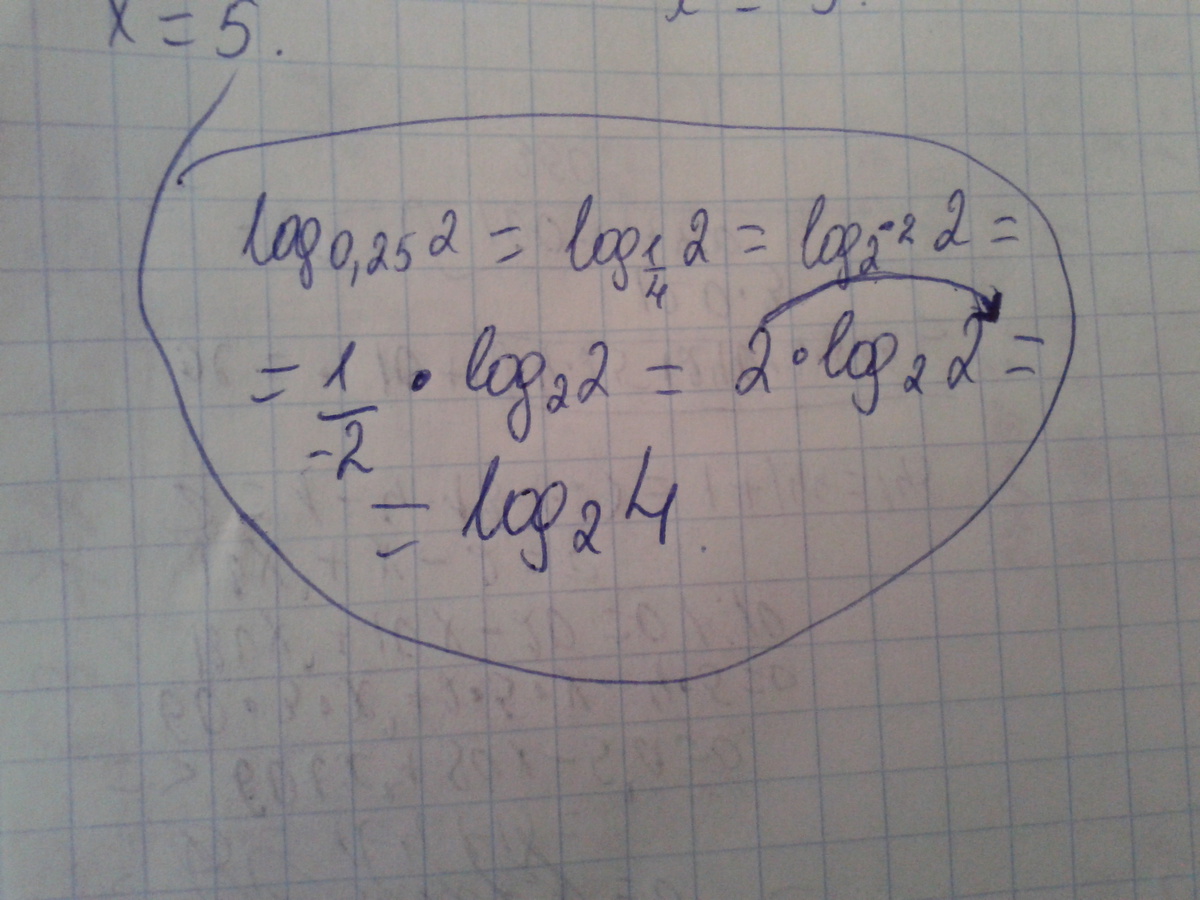 x = 5.
log₀,₂₅ 2 = log_{1/4} 2 = log_{2⁻²} 2 =
= 1/-2 • log₂ 2 = 2 • log₂ 2 =
= log₂ 4.